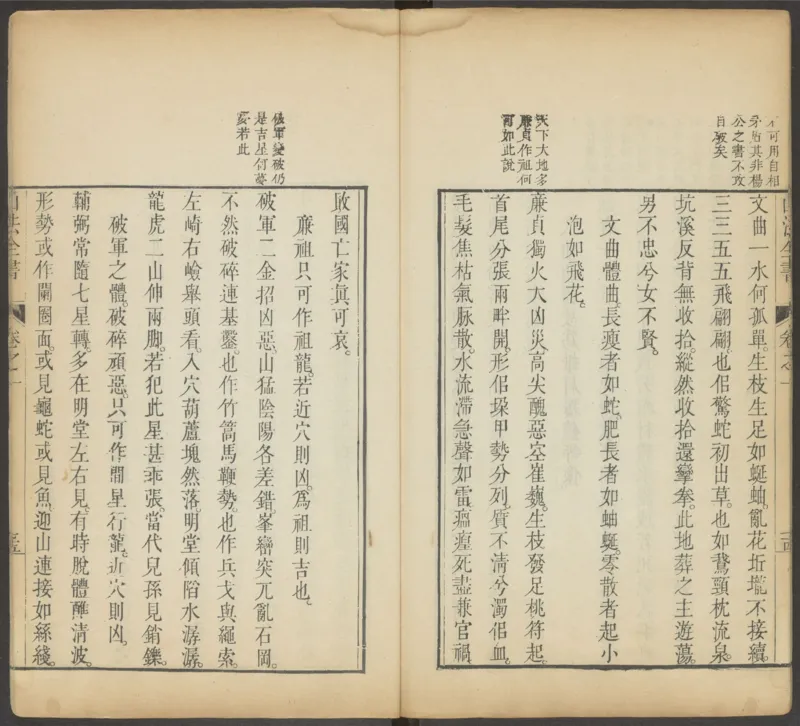 不可用自相
矛盾其非楊
公之書不攻
自破矣
天下大地多
廉貞作祖何
可如此說
山法全書 卷之一
文曲一水何孤單。生枝生足如蜒蚰。亂花圻壠不接續。
三三五五飛翩翩。也侣驚蛇初出草。也如鵞頸枕流泉。
坑溪反背無收拾。縱然收拾還攣拳。此地葬之主遊蕩。
男不忠兮女不賢。
文曲體曲。長瘦者如蛇。肥長者如蚰蜒。零散者起小
泡如飛花。
廉貞獨火大凶災。高尖醜惡空崔巍。生枝發足桃符起。
首尾分張兩畔開。形侣垛甲勢分列。質不清兮濁侣血。
毛髮焦枯氣脉散。水流滯急聲如雷。瘟死盡兼官禍
破軍變破仍
是吉星何
妄若此
敗國亡家眞可哀。
廉祖只可作祖龍。若近穴則凶。爲祖則吉也。
破軍二金招凶惡。山猛陰陽各差錯。峯巒突兀亂石岡。
不然破碎連基鑿。也作竹篙馬鞭勢。也作兵戈與繩索。
左崎右嶮舉頭看。入穴葫蘆塊然落。明堂傾陷水潺潺。
龍虎二山伸兩脚。若犯此星甚乖張。當代兒孫見銷鑠。
破軍之體。破碎頑惡。只可作間星行龍。近穴則凶。
輔弼常隨七星轉。多在明堂左右見。有時脫體醮清波。
形勢或作闌圈面。或見龜蛇或見魚。迎山連接如絲綫。
山法全書 卷之一